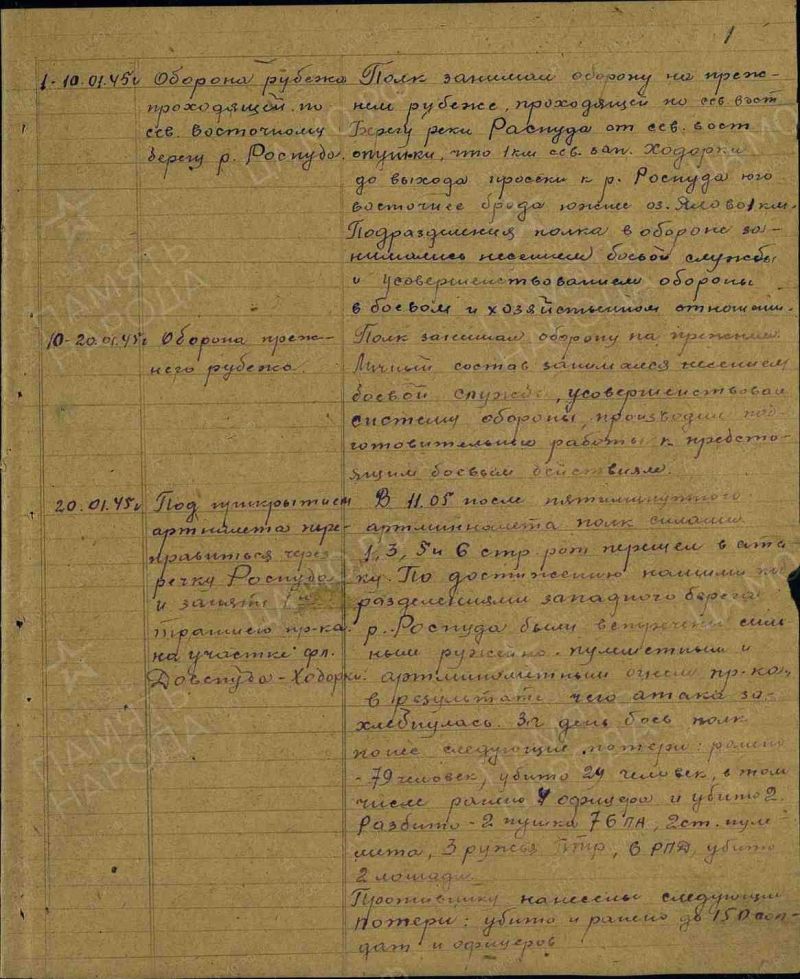 1
1-10.01.45г
Оборона рубежа
проходящей по
сев. восточному
берегу р. Роспуда.
Полк занимал оборону на преж-
нем рубеже, проходящей по сев. вост
берегу реки Распуда от сев. вост
опушки, что 1 км сев. зап. Ходорки
до выхода просеки к р. Роспуда юго
восточнее брода южнее оз. Ялово 1 км.
Подразделения полка в обороне за-
нимались несением боевой службы
и усовершенствованием обороны
в боевом и хозяйственном отношении.
10-20.01.45г
Оборона преж-
него рубежа.
Полк занимал оборону на прежнем.
Личный состав занимался несением
боевой службы, усовершенствовал
систему обороны, производил под-
готовительные работы к предсто-
ящим боевым действиям.
20.01.45г
Под прикрытием
артналета пере-
правиться через
речку Роспуда
и занять 1ю
траншею пр-ка.
на участке фл.
Довспуда-Ходорки.
В 11.05 после пятиминутного
артминналета полк силами
1, 3, 5 и 6 стр. рот перешел в ата
ку. По достижению нашими под
разделениями западного берега
р. Роспуда были встречены силь
ным ружейно-пулеметным и
артминометным огнем пр-ка,
в результате чего атака за-
хлебнулась. За день боя полк
понес следующие потери: ранено
-79 человек, убито 24 человек, в том
числе ранено 4 офицера и убито 2.
Разбито - 2 пушки 76 ПА, 2 ст. пуле
мета, 3 ружья ПТР, 6 РПД, убито
2 лошади.
Противнику нанесены следующие
потери: убито и ранено до 150 сол-
дат и офицеров
ПАМЯТЬ
НАРОДА